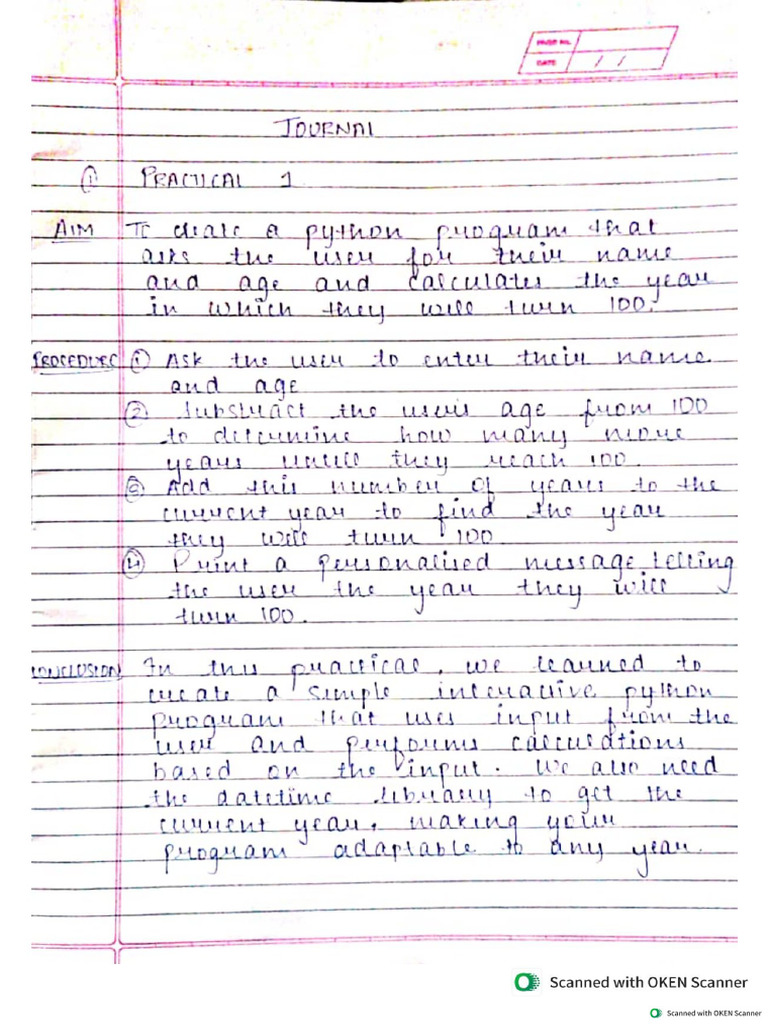 PAGE NO.
DATE / /
JOURNAL
① PRACTICAL 1
AIM To create a python program that
asks the user for their name
and age and calculates the year
in which they will turn 100.
PROCEDURE ① Ask the user to enter their name
and age
② Substract the user's age from 100
to determine how many more
years untill they reach 100.
③ Add this number of years to the
current year to find the year
they will turn 100
④ Print a personalised message telling
the user the year they will
turn 100.
CONCLUSION In this practical, we learned to
create a simple interactive python
program that uses input from the
user and performs calculations
based on the input. We also need
the datetime library to get the
current year, making your
program adaptable to any year.
Scanned with OKEN Scanner
Scanned with OKEN Scanner